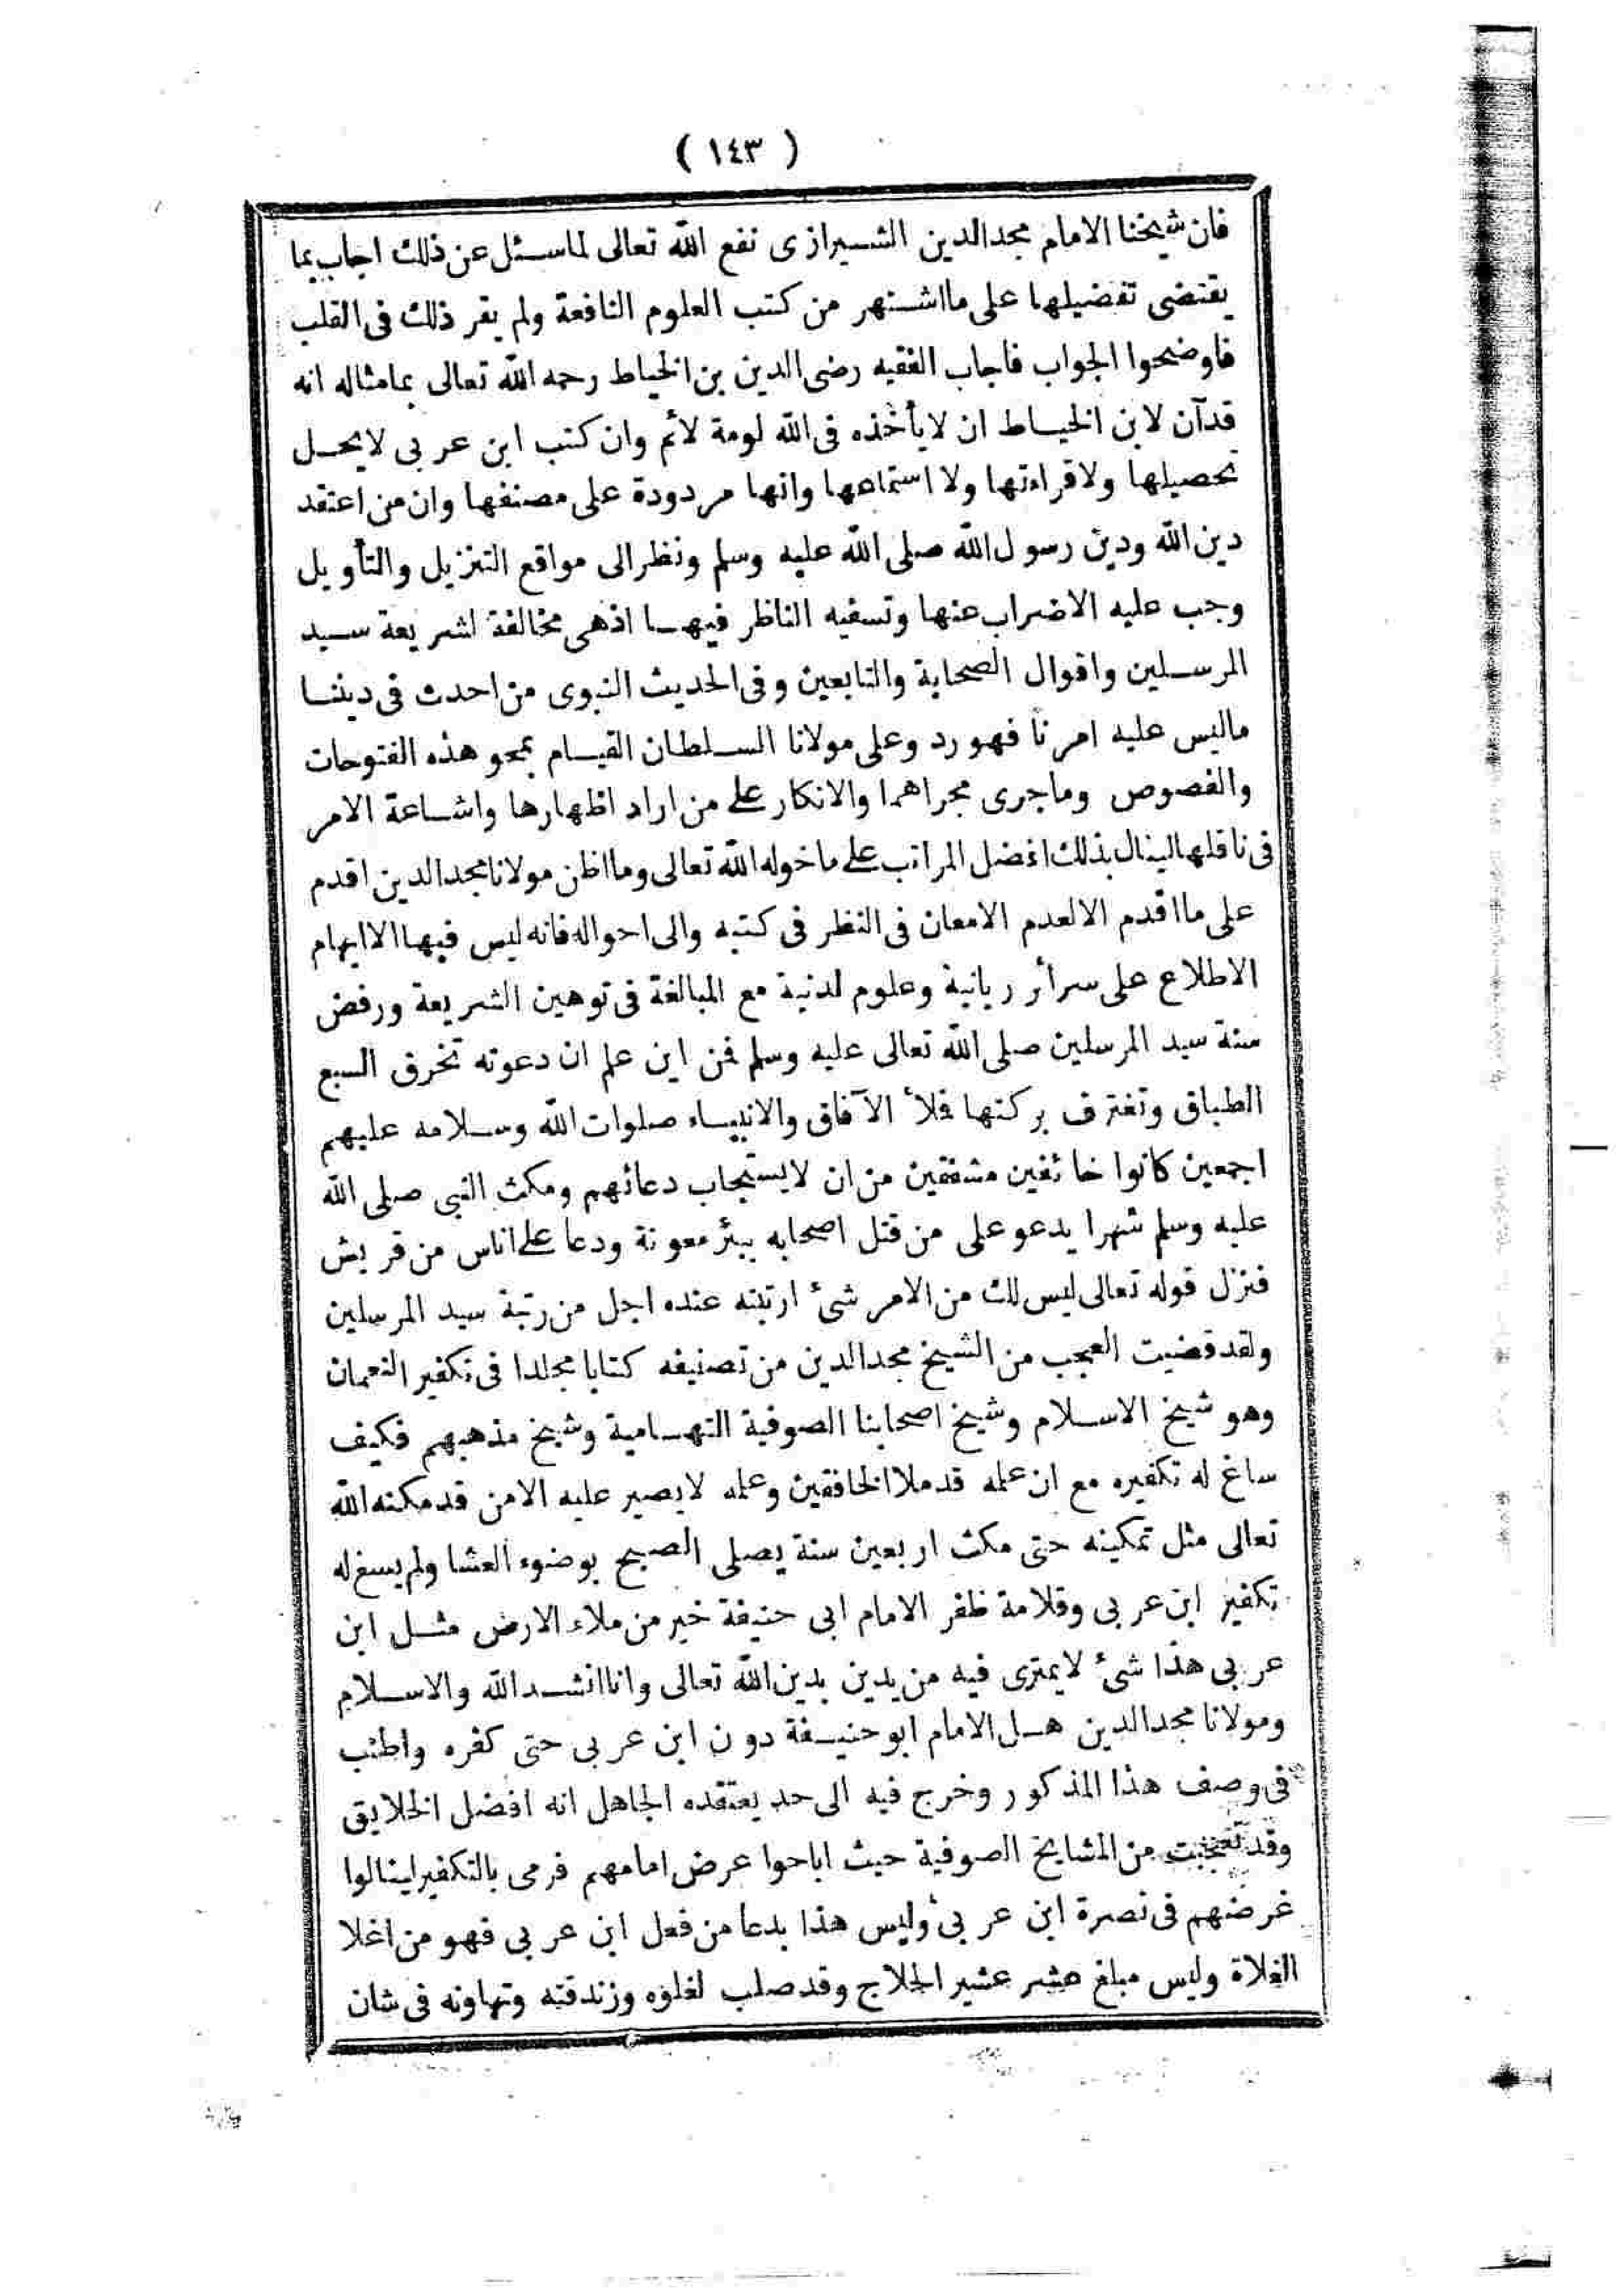 ( ١٤٣ )
فان شيخنا الامام مجدالدين الشيرازى نفع الله تعالى لماسئل عن ذلك اجاب بما
يقتضى تفضيلها على مااشتهر من كتب العلوم النافعة ولم يقر ذلك فى القلب
فاوضحوا الجواب فاجاب الفقيه رضى الدين بن الخياط رحمه الله تعالى بمامثاله انه
قدآن لابن الخياط ان لايأخذه فى الله لومة لائم وان كتب ابن عربى لايحل
تحصيلها ولاقراءتها ولا استماعها وانها مردودة على مصنفها وان من اعتقد
دين الله ودين رسول الله صلى الله عليه وسلم ونظر الى مواقع التنزيل والتأويل
وجب عليه الاضراب عنها وتسفيه الناظر فيها اذهى مخالفة لشريعة سيد
المرسلين واقوال الصحابة والتابعين وفى الحديث النبوى من احدث فى ديننا
ماليس عليه امرنا فهورد وعلى مولانا السلطان القيام بمحو هذه الفتوحات
والفصوص وماجرى مجراهما والانكار على من اراد اظهارها واشاعة الامر
فى ناقلها لينال بذلك افضل المراتب على ماخوله الله تعالى ومااظن مولانا مجدالدين اقدم
على مااقدم الالعدم الامعان فى النظر فى كتبه والى احواله فانه ليس فيها الاايهام
الاطلاع على سرائر ربانية وعلوم لدنية مع المبالغة فى توهين الشريعة ورفض
سنة سيد المرسلين صلى الله تعالى عليه وسلم فمن اين علم ان دعوته تخرق السبع
الطباق وتغترف بركتها فلأ الآفاق والانبياء صلوات الله وسلامه عليهم
اجمعين كانوا خائفين مشفقين من ان لايستجاب دعائهم ومكث النبى صلى الله
عليه وسلم شهرا يدعو على من قتل اصحابه ببئر معونة ودعا على اناس من قريش
فنزل قوله تعالى ليس لك من الامر شئ ارتبته عنده اجل من رتبة سيد المرسلين
ولقد قضيت العجب من الشيخ مجدالدين من تصنيفه كتابا مجلدا فى تكفير النعمان
وهو شيخ الاسلام وشيخ اصحابنا الصوفية التهامية وشيخ مذهبهم فكيف
ساغ له تكفيره مع ان علمه قدملا الخافقين وعلمه لايصير عليه الامن قدمكنه الله
تعالى مثل تمكينه حتى مكث اربعين سنة يصلى الصبح بوضوء العشا ولم يسغ له
تكفير ابن عربى وقلامة ظفر الامام ابى حنيفة خير من ملاء الارض مثل ابن
عربى هذا شئ لايمترى فيه من يدين بدين الله تعالى واناانشد الله والاسلام
ومولانا مجدالدين هل الامام ابوحنيفة دون ابن عربى حتى كفره واطنب
فى وصف هذا المذكور وخرج فيه الى حد يعتقده الجاهل انه افضل الخلايق
وقد تعجبت من المشايخ الصوفية حيث اباحوا عرض امامهم فرمى بالتكفير لينالوا
غرضهم فى نصرة ابن عربى وليس هذا بدعا من فعل ابن عربى فهو من اغلا
الغلاة وليس مبلغ عشر عشير الحلاج وقد صلب لغلوه وزندقته وتهاونه فى شان